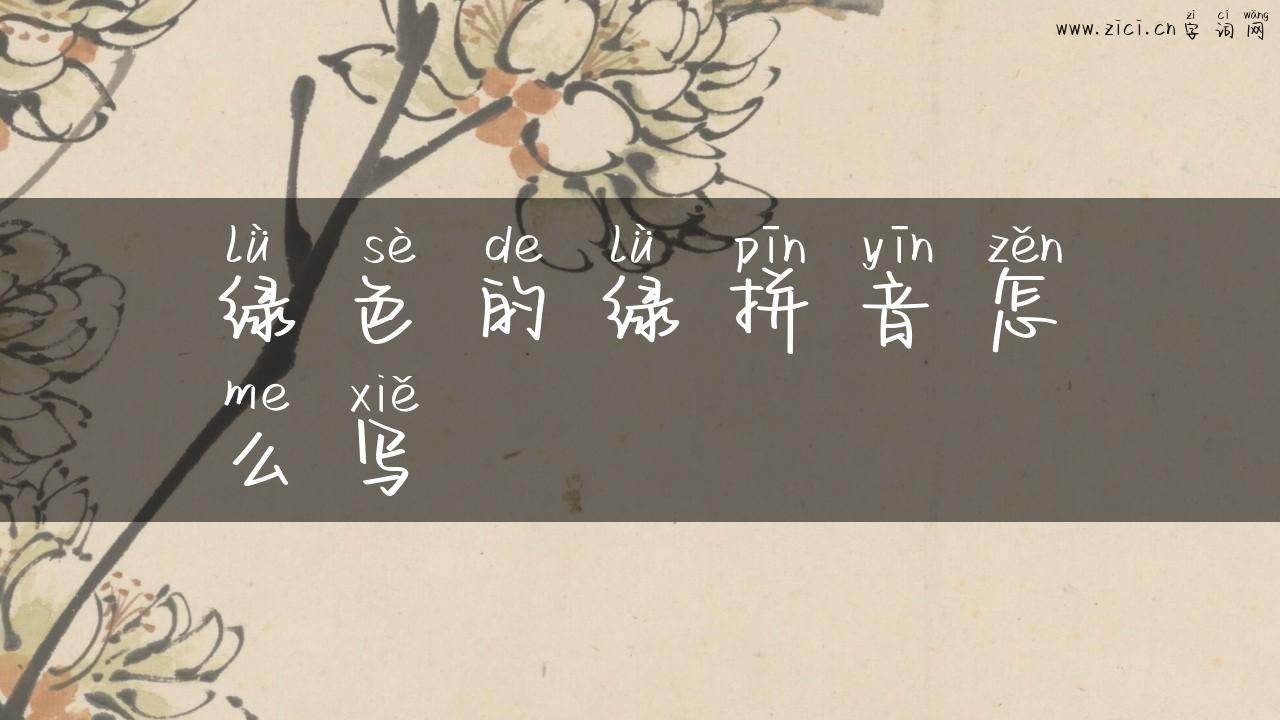 zì cí wǎng
www.zici.cn 字 词 网
lǜ sè de lǜ pīn yīn zěn
绿 色 的 绿 拼 音 怎
me xiě
么 写